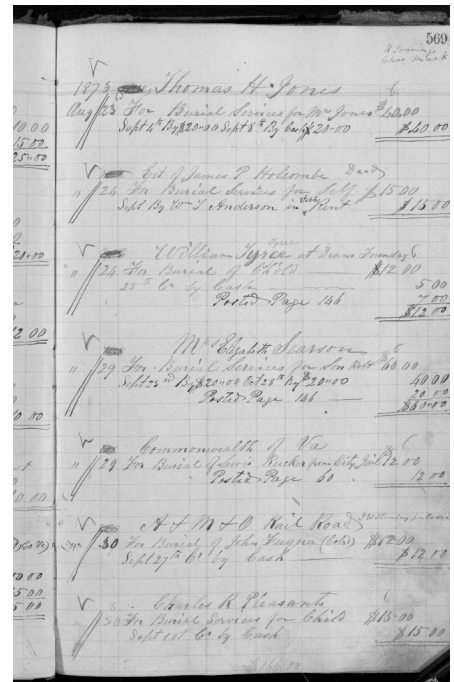 569
1873 Thomas H. Jones 6
Aug 23 For Burial Services for Mrs Jones $40.00
Sept 4th By $20=00 Sept 8th By Cash $20=00 $40.00
Est of James P Holcombe Decd
" 24 For Burial Services for Self $15.00
Sept By Wm T Anderson in Rent $15.00
Tyree
William Tyree at Deans Foundry
" 24 For Burial of Child $12.00
25th Cr by Cash 5 00
Posted Page 146 7 00
$12 00
Mrs Elizabeth Searson 6
" 29 For Burial Services for Son Robt $60.00
Sept 23rd By $20=00 Oct 28th By $20=00 40.00
Posted Page 146 20 00
$60=00
Commonwealth of Va 6
" 29 For Burial of Rucker from City Jail $12.00
Posted Page 60 12 00
A & M & O Rail Road
" 30 For Burial of John Fuqua (Cold) $12=00
Sept 27th Cr by Cash $12.00
Charles R Pleasants 6
" 30 For Burial Services for Child $15=00
Sept 1st Cr by Cash $15.00
10.00
15.00
25=00
20=00
12.00
10.00
5.00